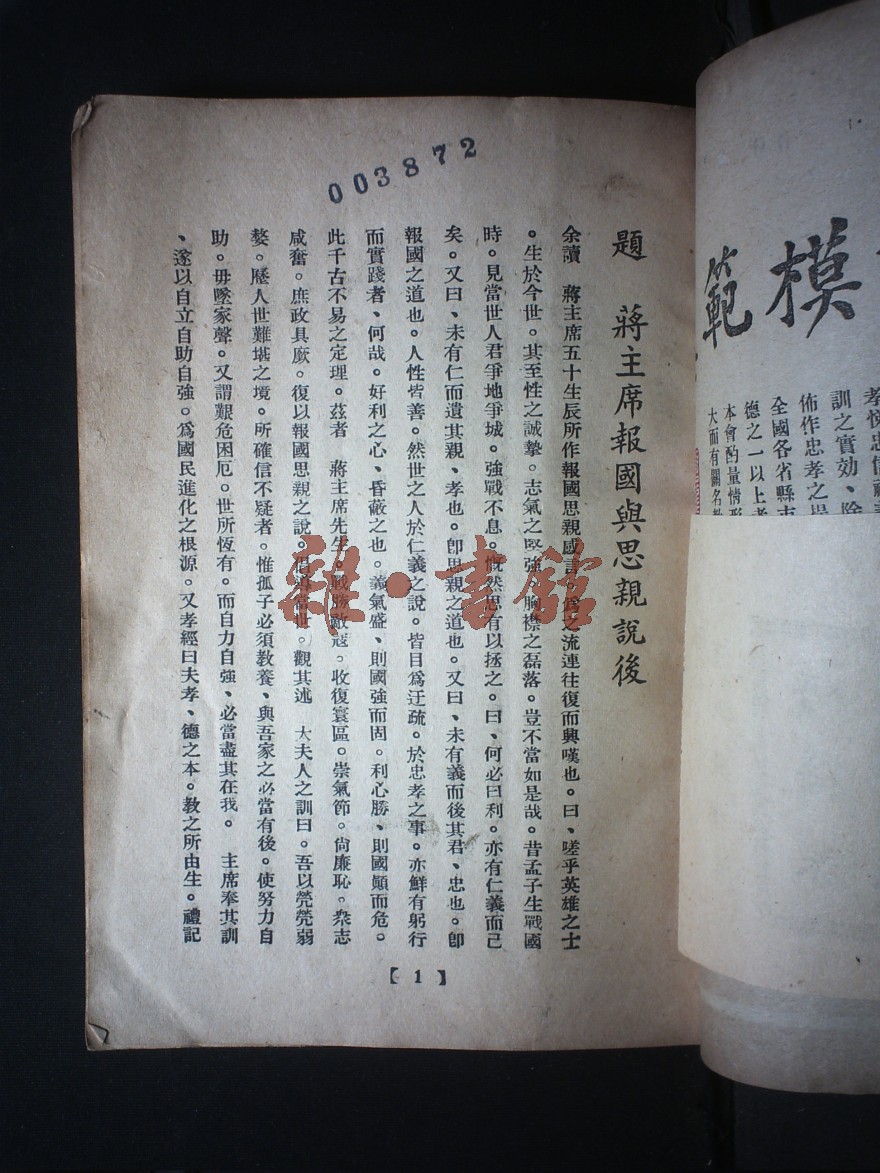 003872
題　蔣主席報國與思親說後
余讀　蔣主席五十生辰所作報國思親感言。爲之流連往復而興嘆也。曰、嗟乎英雄之士
。生於今世。其至性之誠摯。志氣之堅強。胸襟之磊落。豈不當如是哉。昔孟子生戰國
時。見當世人君爭地爭城。強戰不息。慨然思有以拯之。曰、何必曰利。亦有仁義而已
矣。又曰、未有仁而遺其親、孝也。卽思親之道也。又曰、未有義而後其君、忠也。卽
報國之道也。人性皆善。然世之人於仁義之說。皆目爲迂疏。於忠孝之事。亦鮮有躬行
而實踐者、何哉。好利之心、昏蔽之也。義氣盛、則國強而固。利心勝、則國顚而危。
此千古不易之定理。茲者　蔣主席先生。戰勝敵寇。收復寰區。崇氣節。尙廉恥。衆志
咸奮。庶政具厥。復以報國思親之說。倡導當世。觀其述　大夫人之訓曰。吾以煢煢弱
嫠。歷人世難堪之境。所確信不疑者。惟孤子必須教養、與吾家之必當有後。使努力自
助。毋墜家聲。又謂艱危困厄。世所恆有。而自力自強、必當盡其在我。　主席奉其訓
、遂以自立自助自強。爲國民進化之根源。又孝經曰夫孝、德之本。教之所由生。禮記
【1】
雜·書館
模
範
訓之實効、除
佈作忠孝之
全國各省縣市
德之一以上者
本會酌量情形
大而有關名教